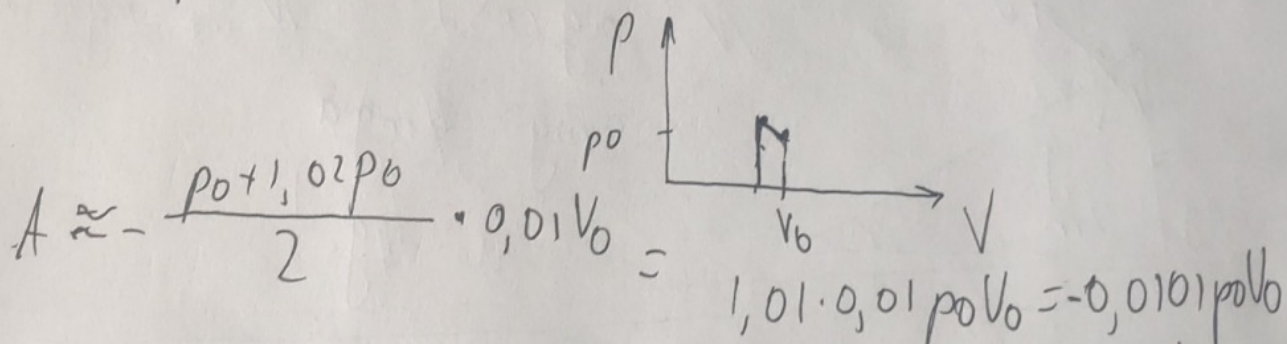 p
p0
V0
V
A ≈ - (p0+1,02p0)/2 · 0,01V0 =
1,01·0,01p0V0 =-0,0101p0V0